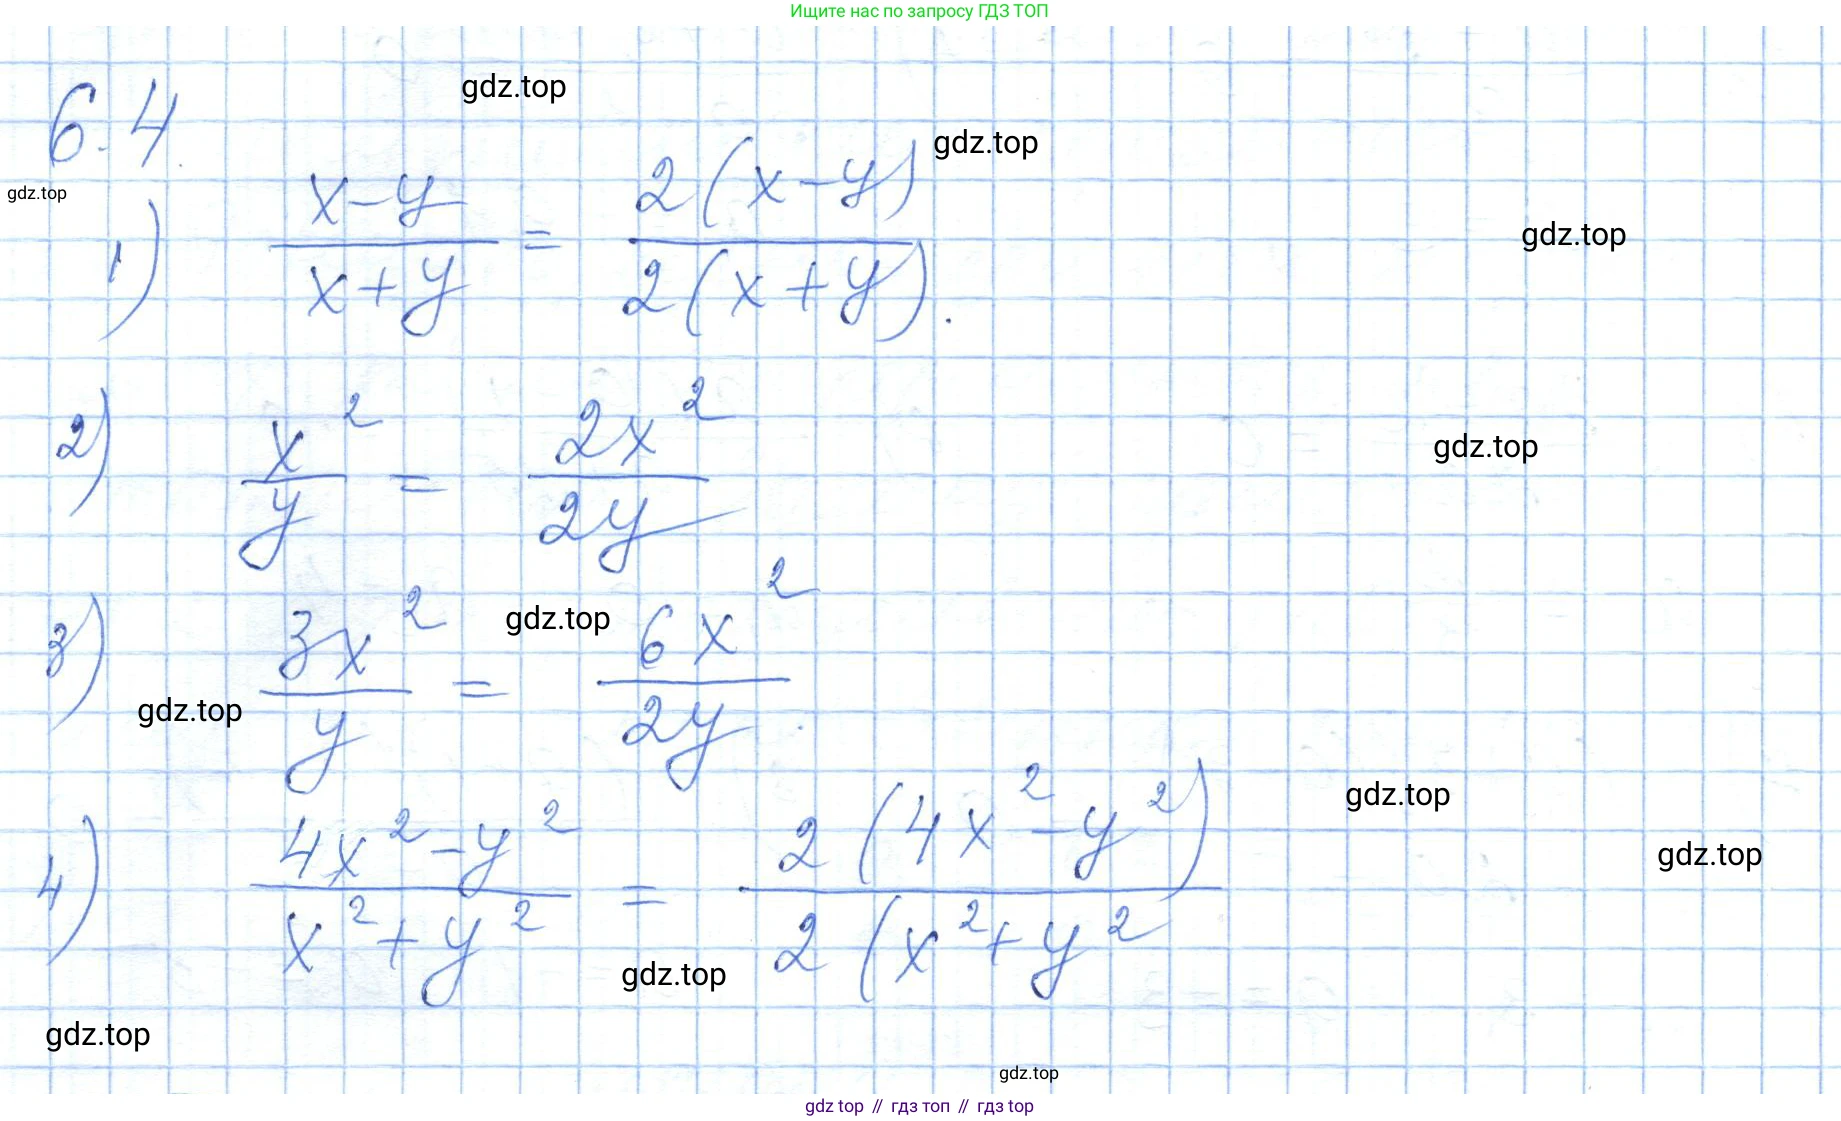 Ищите нас по запросу ГДЗ ТОП
6.4
gdz.top
gdz.top
gdz.top
1) (x-y)/(x+y) = 2(x-y)/2(x+y).
gdz.top
2) x²/y = 2x²/2y
gdz.top
3) 3x²/y = 6x²/2y.
gdz.top
gdz.top
4) (4x²-y²)/(x²+y²) = 2(4x²-y²)/2(x²+y²
gdz.top
gdz.top
gdz.top
gdz.top
gdz.top
gdz top // гдз топ // гдз top